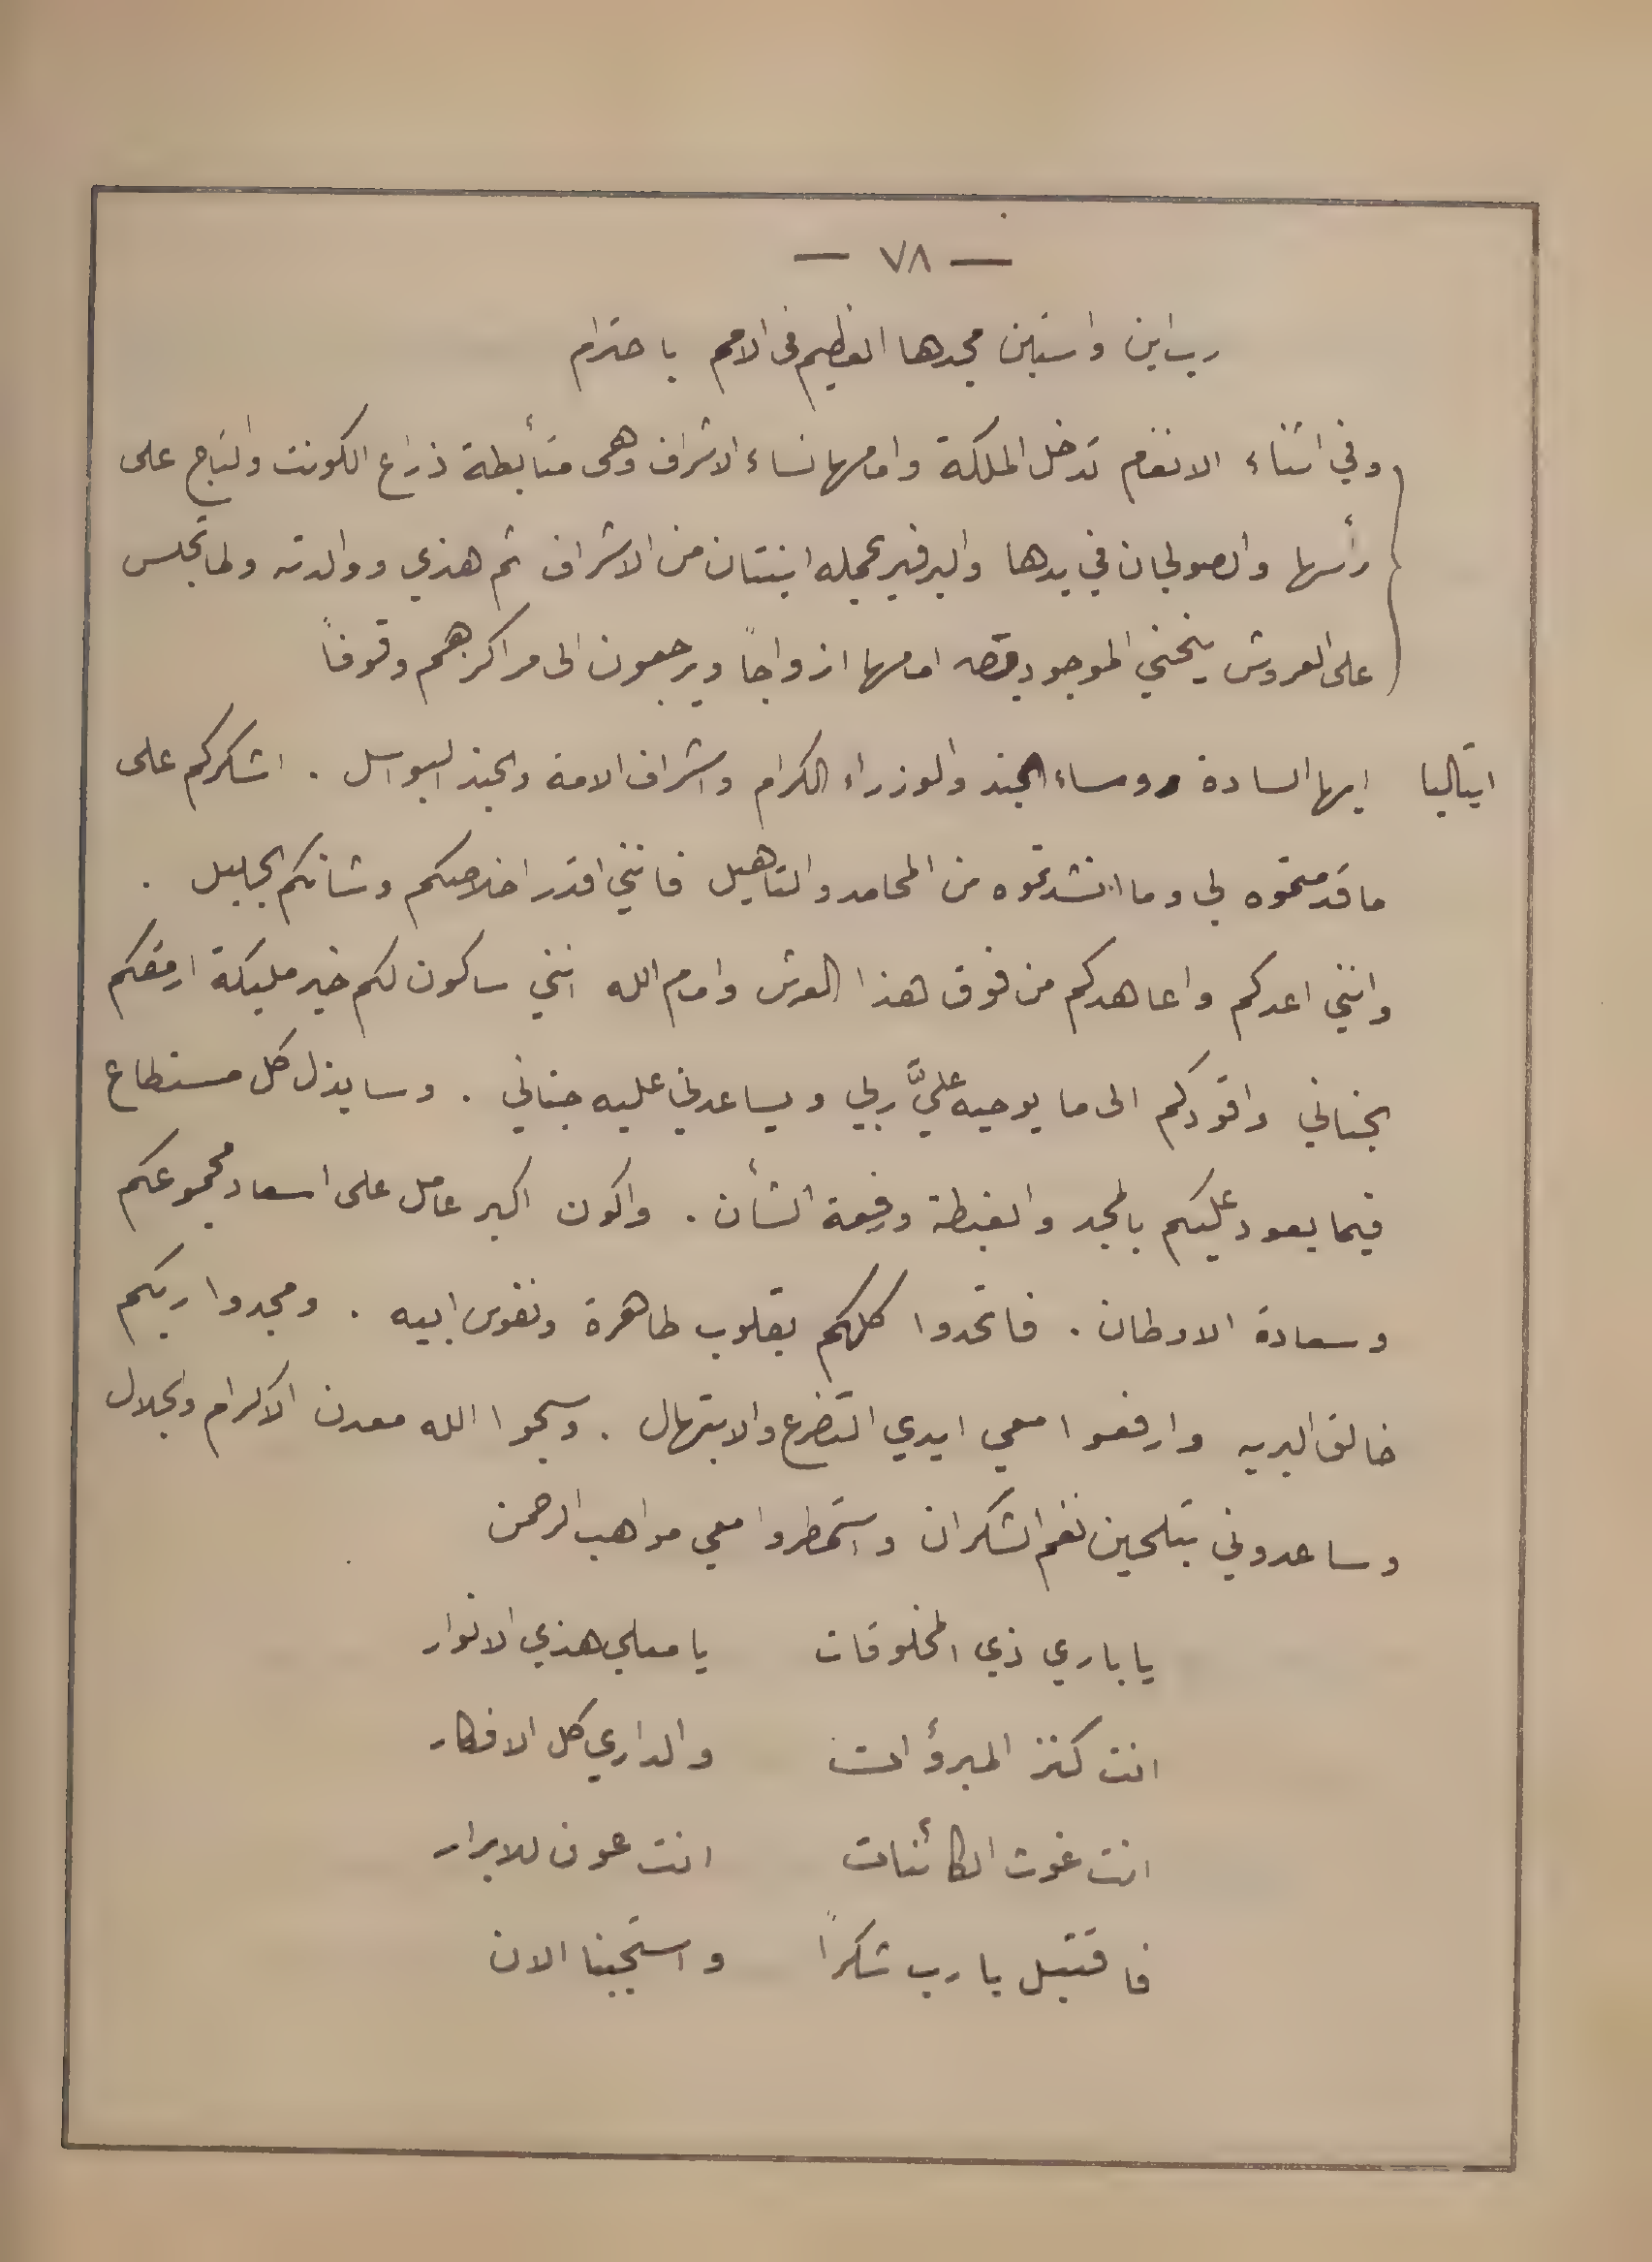 — ٧٨ —
رب اين واستبين مجدها العظيم فى الامم باحترام
وفي اثناء الانغام تدخل الملكة وامامها نساء الاشراف وهى متأبطة ذراع الكونت والتاج على
رأسها والصولجان في يدها والبرفير يحمله ابنتان من الاشراف ثم هنري ووالدته ولما تجلس
على العروش ينحني الموجودون امامها ازواجاً ويرجعون الى مراكزهم وقوفاً
ايتاليا ايها السادة روساء الجند والوزراء الكرام واشراف الامة والجند البواسل . اشكركم على
ما قدمتموه لي وما انشدتموه من المحامد والتاهيل فانني اقدر اخلاصكم وشانكم الجليل .
وانني اعدكم واعاهدكم من فوق هذا العرش وامام الله انني ساكون لكم خير مليكة ارمقكم
بجناني واقودكم الى ما يوحيه عليَّ ربي ويساعدني عليه جناني . وسابذل كل مستطاع
فيما يعود عليكم بالمجد والغبطة ورفعة الشأن . واكون اكبر عامل على اسعاد مجموعكم
وسعادة الاوطان . فاتحدوا كلكم بقلوب طاهرة ونفوس ابيه . ومجدوا ربكم
خالق البريه وارفعوا معي ايدي التضرع والابتهال . وسبحوا الله معدن الاكرام والجلال
وساعدوني بتلحين نغم الشكران واستمطروا معي مواهب الرحمن
يا باري ذي المخلوقات يا معلي هذي الانوار
انت كنز المبرؤات والداري كل الافكار
انت غوث الكائنات انت عون للابرار
فاقتبل يا رب شكراً واستجبنا الان